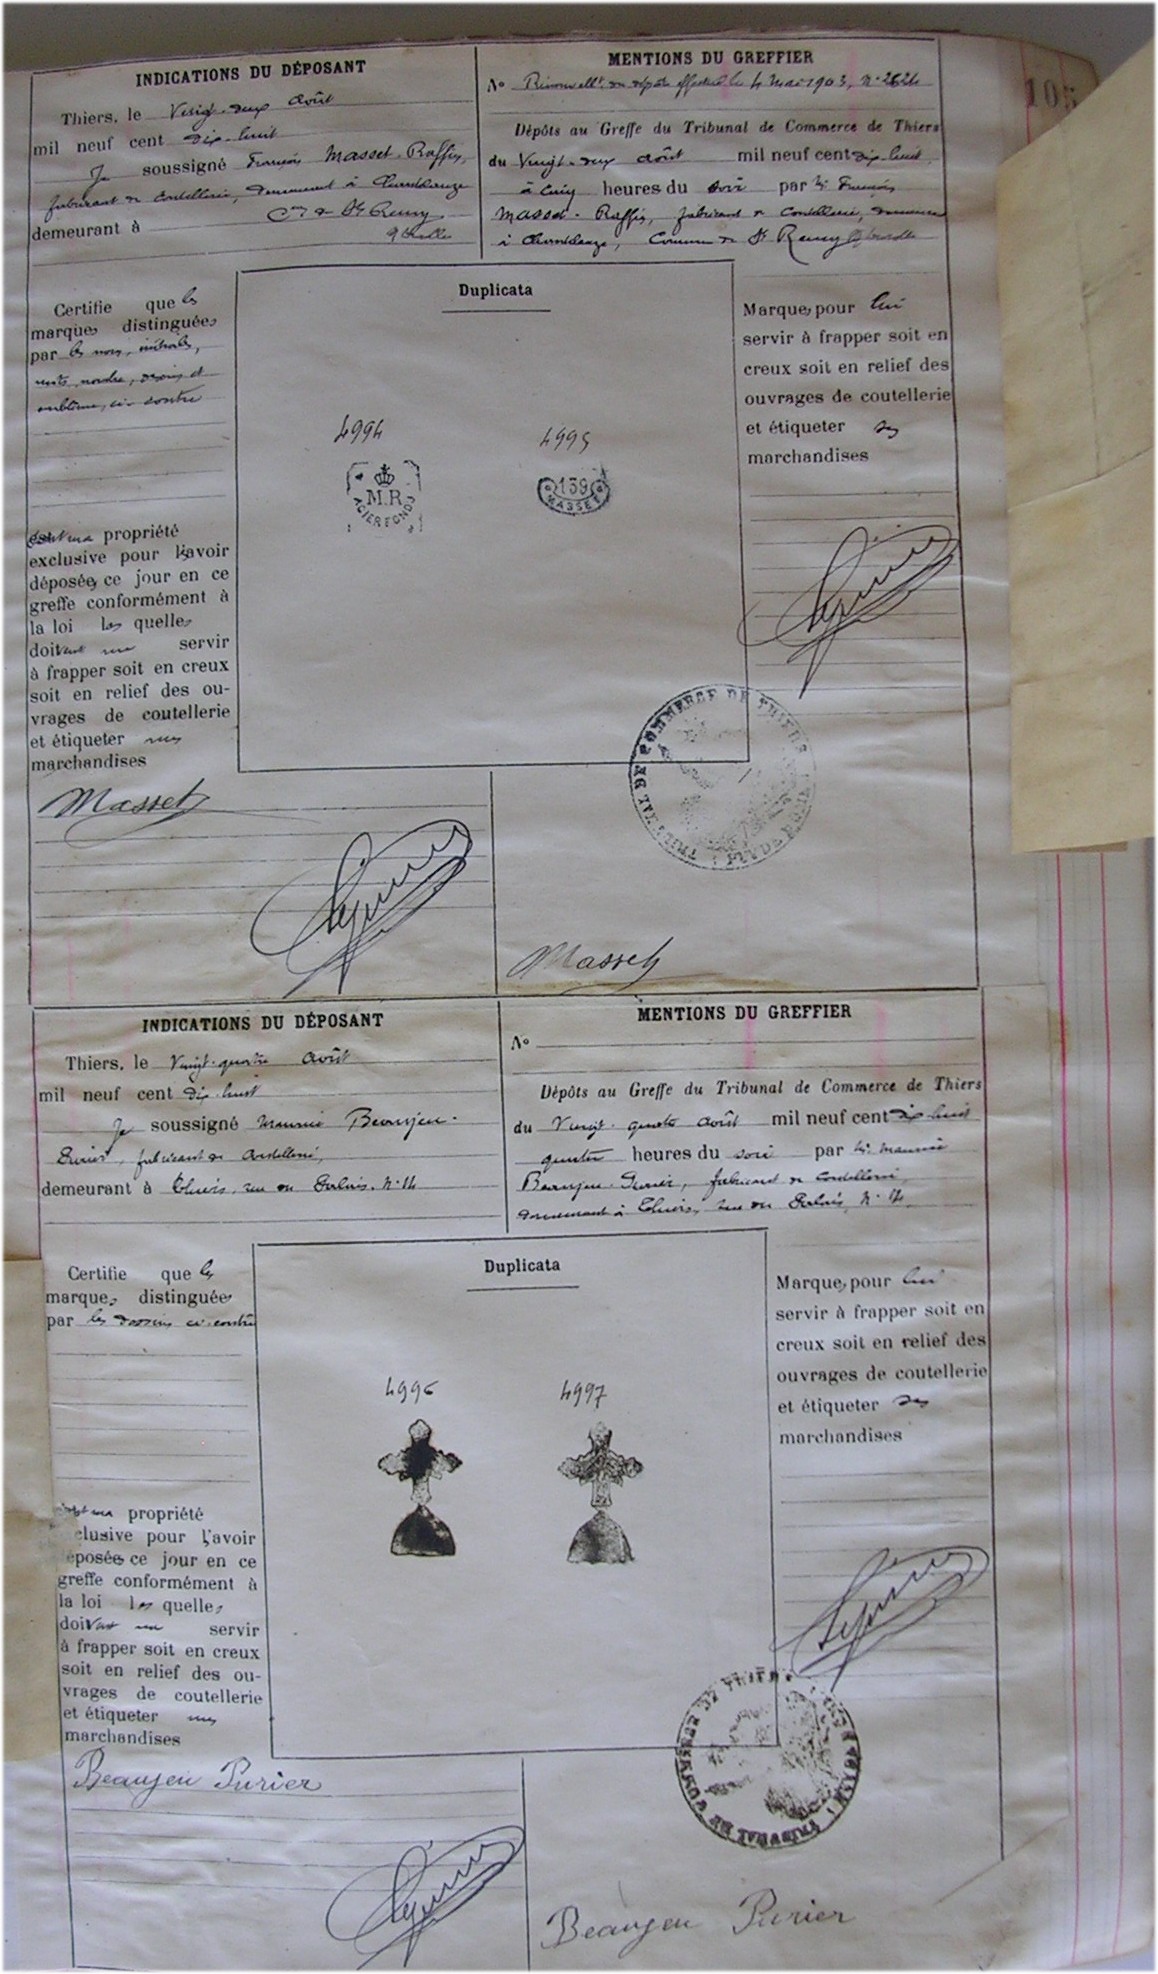 105
INDICATIONS DU DÉPOSANT
Thiers, le Vingt-deux Août
mil neuf cent dix-huit
Je soussigné François Masset-Raffin,
fabricant de coutellerie, demeurant à
Cne de St Remy
demeurant à
MENTIONS DU GREFFIER
No Renouvellt du dépôt effectué le 4 Mai 1903, No 2624
Dépôts au Greffe du Tribunal de Commerce de Thiers
du Vingt-deux Août mil neuf cent dix-huit,
à cinq heures du soir par Mr François
Masset-Raffin, fabricant de coutellerie, demeurant
à Commune de St Remy
Certifie que les
marques distinguées
par les noms, initiales,
mots, nombre, dessins et
emblème, ci-contre
sont ma propriété
exclusive pour les avoir
déposées ce jour en ce
greffe conformément à
la loi les quelles
doivent me servir
à frapper soit en creux
soit en relief des ou-
vrages de coutellerie
et étiqueter mes
marchandises
Masset
Duplicata
4994 4995
M.R
ACIER FOND
139
MASSET
Marques pour lui
servir à frapper soit en
creux soit en relief des
ouvrages de coutellerie
et étiqueter ses
marchandises
TRIBUNAL DE COMMERCE DE THIERS
Masset
INDICATIONS DU DÉPOSANT
Thiers, le Vingt-quatre Août
mil neuf cent dix-huit
Je soussigné Maurice Beaujeu-
Purier, fabricant de coutellerie,
demeurant à Thiers, rue du Palais, No 14
MENTIONS DU GREFFIER
No
Dépôts au Greffe du Tribunal de Commerce de Thiers
du Vingt-quatre Août mil neuf cent dix-huit
quatre heures du soir par Mr Maurice
Beaujeu-Purier, fabricant de coutellerie,
demeurant à Thiers, rue du Palais, No 14
Certifie que les
marques distinguées
par les dessins ci-contre
sont ma propriété
clusive pour l'avoir
éposées ce jour en ce
greffe conformément à
la loi les quelles
doivent me servir
à frapper soit en creux
soit en relief des ou-
vrages de coutellerie
et étiqueter mes
marchandises
Beaujeu Purier
Duplicata
4996 4997
Marques pour lui
servir à frapper soit en
creux soit en relief des
ouvrages de coutellerie
et étiqueter ses
marchandises
TRIBUNAL DE COMMERCE DE THIERS
Beaujeu Purier